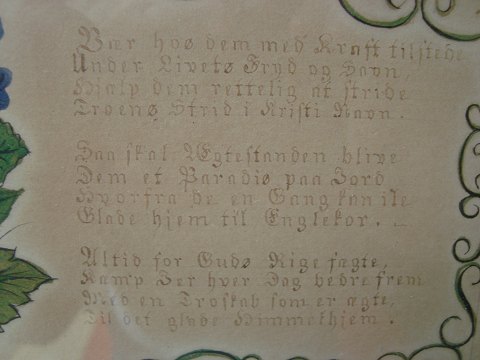 Vær hos dem med Kraft tilstede
Under Livets Fryd og Savn,
Hjælp dem rettelig at stride
Troens Strid i Kristi Navn.
Saa skal Ægtestanden blive
Dem et Paradis paa Jord
Hvorfra de en Gang kan ile
Glade hjem til Englekor.
Altid for Guds Rige fægte,
Kæmp Jer hver Dag bedre frem
Med en Troskab som er ægte,
Til det glade Himmelhjem.